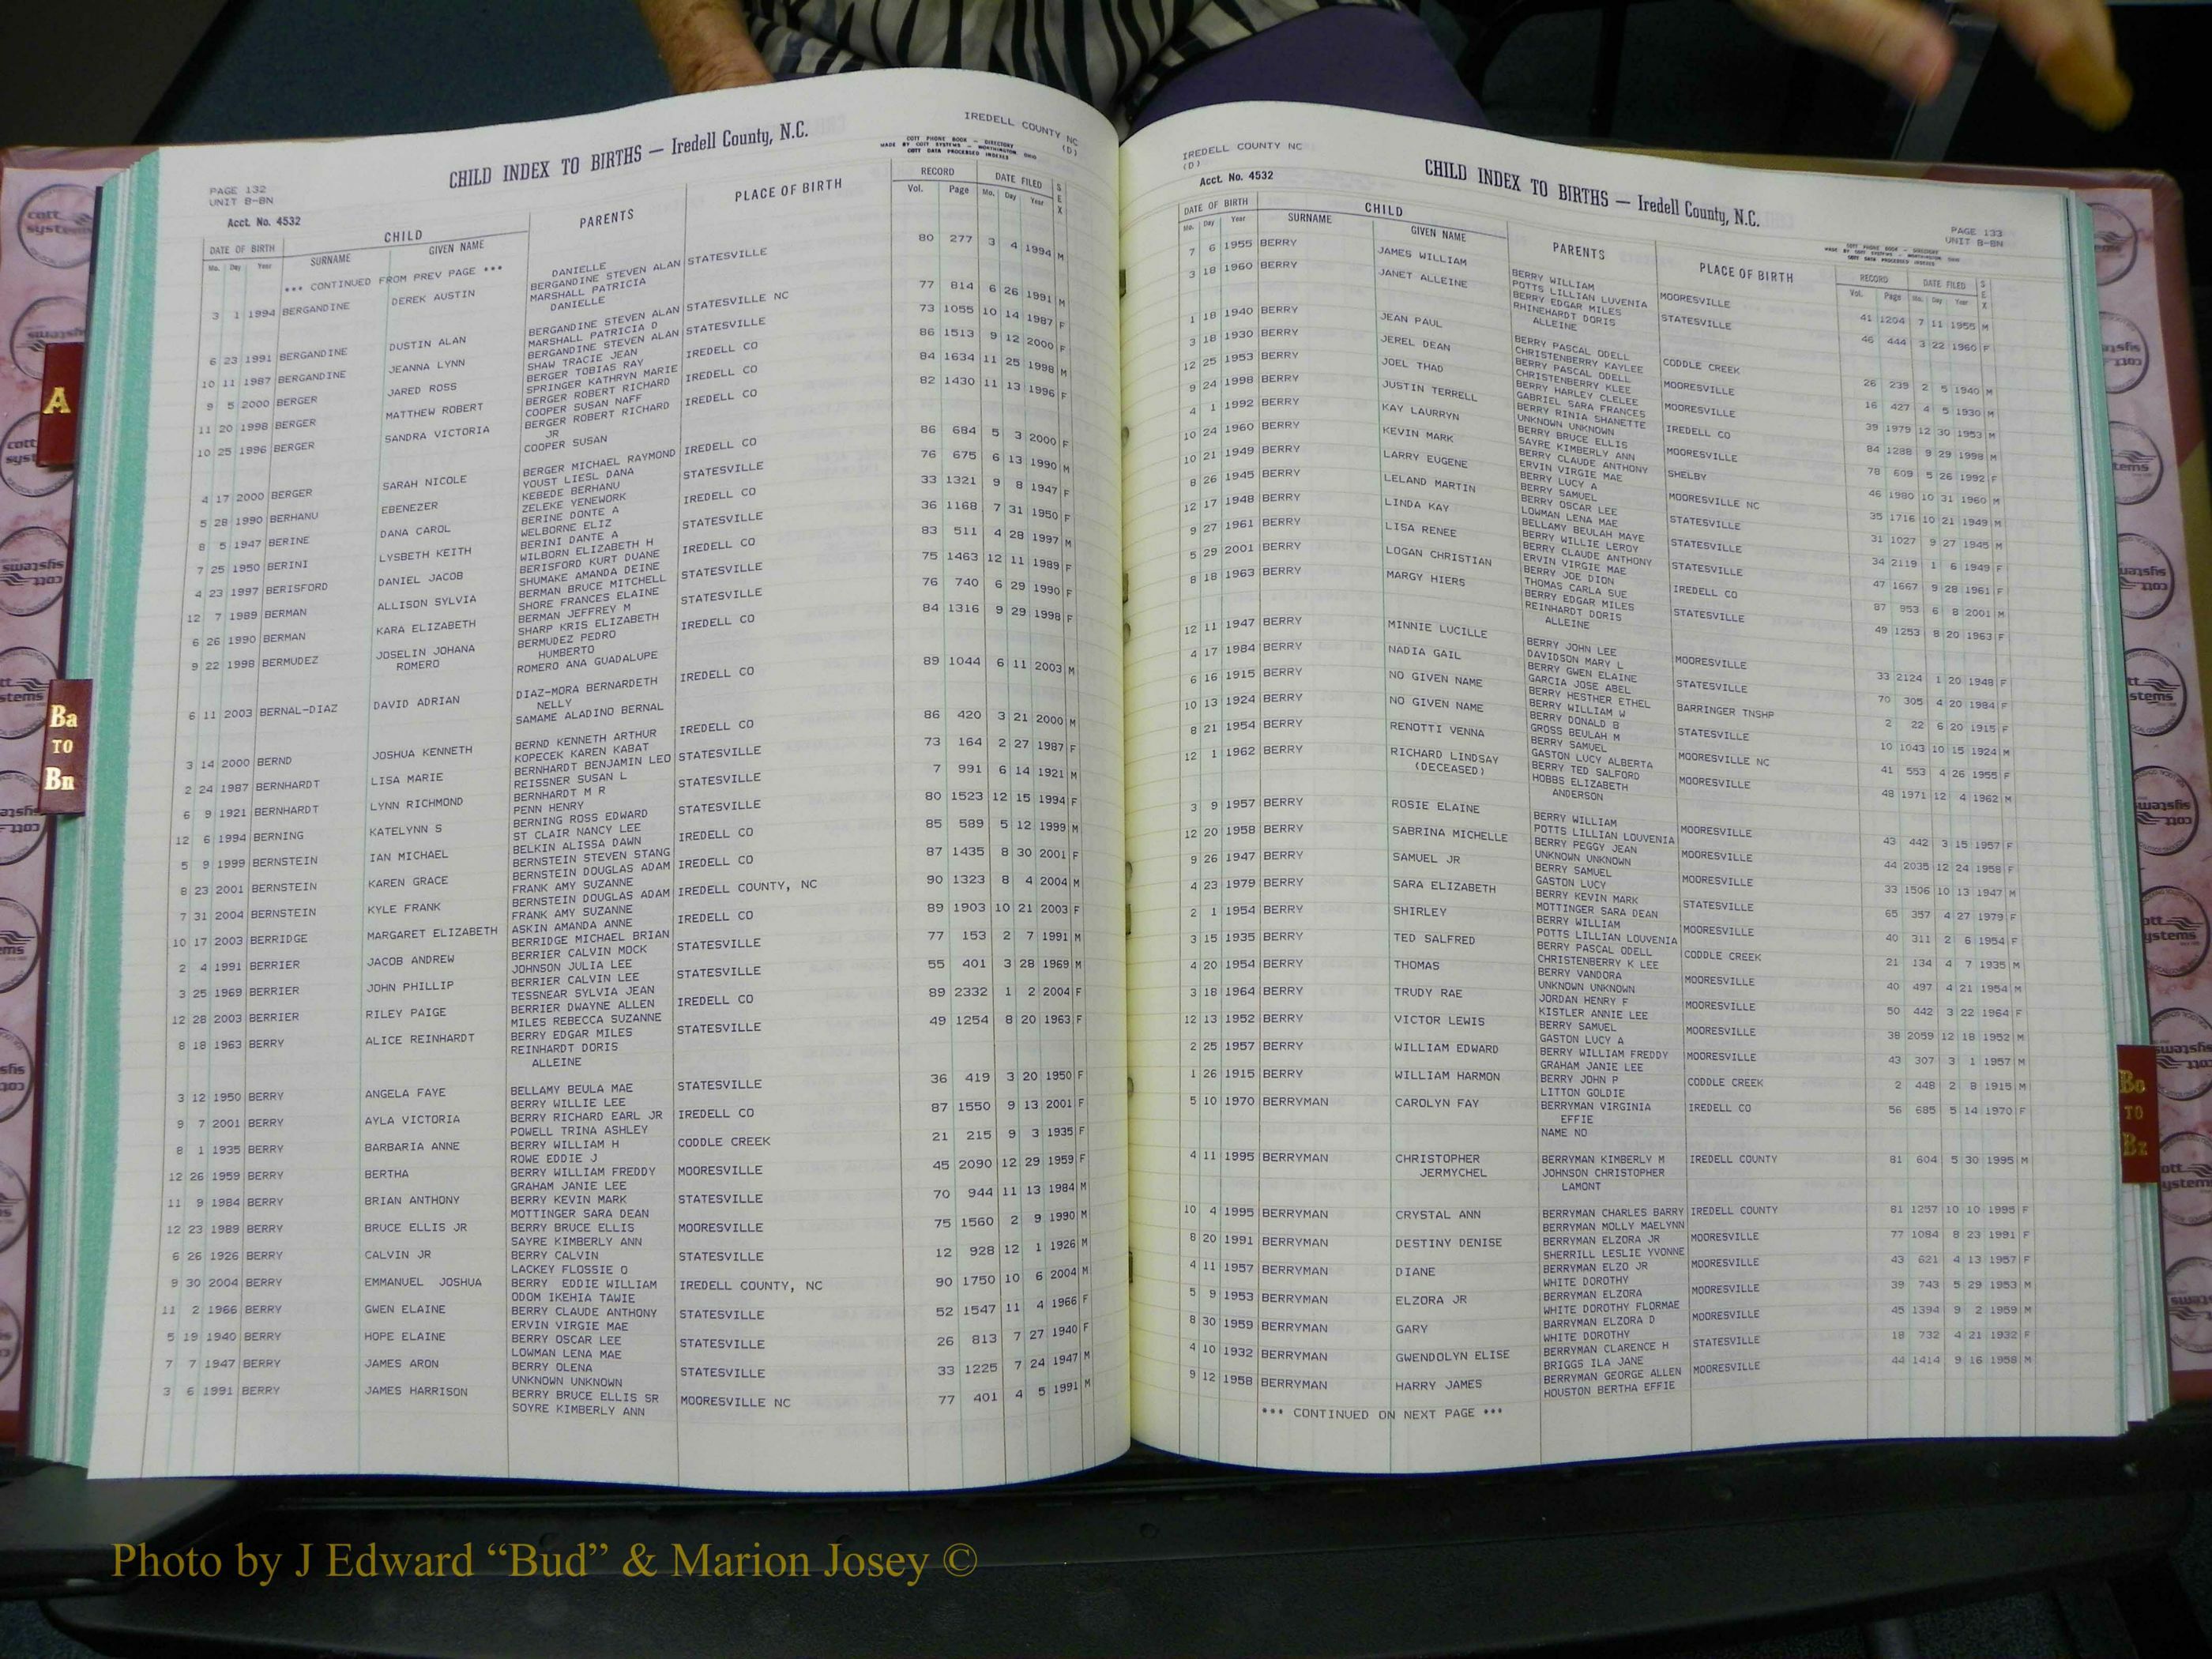 IREDELL COUNTY NC
(D)
CHILD INDEX TO BIRTHS — Iredell County, N.C.
PAGE 132
UNIT B-BN
Acct. No. 4532
DATE OF BIRTH CHILD PARENTS PLACE OF BIRTH RECORD DATE FILED SEX
Mo. Day Year SURNAME GIVEN NAME Vol. Page Mo. Day Year
*** CONTINUED FROM PREV PAGE ***
DANIELLE
3 1 1994 BERGANDINE DEREK AUSTIN BERGANDINE STEVEN ALAN STATESVILLE 80 277 3 4 1994 M
MARSHALL PATRICIA
DANIELLE
6 23 1991 BERGANDINE DUSTIN ALAN BERGANDINE STEVEN ALAN STATESVILLE NC 77 814 6 26 1991 M
MARSHALL PATRICIA D
10 11 1987 BERGANDINE JEANNA LYNN BERGANDINE STEVEN ALAN STATESVILLE 73 1055 10 14 1987 F
SHAW TRACIE JEAN
9 5 2000 BERGER JARED ROSS BERGER TOBIAS RAY IREDELL CO 86 1513 9 12 2000 F
SPRINGER KATHRYN MARIE
11 20 1998 BERGER MATTHEW ROBERT BERGER ROBERT RICHARD IREDELL CO 84 1634 11 25 1998 M
COOPER SUSAN NAFF
10 25 1996 BERGER SANDRA VICTORIA BERGER ROBERT RICHARD IREDELL CO 82 1430 11 13 1996 F
JR
COOPER SUSAN
4 17 2000 BERGER SARAH NICOLE BERGER MICHAEL RAYMOND IREDELL CO 86 684 5 3 2000 F
YOUST LIESL DANA
5 28 1990 BERHANU EBENEZER KEBEDE BERHANU STATESVILLE 76 675 6 13 1990 M
ZELEKE YENEWORK
8 5 1947 BERINE DANA CAROL BERINE DONTE A IREDELL CO 33 1321 9 8 1947 F
WELBORNE ELIZ
7 25 1950 BERINI LYSBETH KEITH BERINI DANTE A STATESVILLE 36 1168 7 31 1950 F
WILBORN ELIZABETH H
4 23 1997 BERISFORD DANIEL JACOB BERISFORD KURT DUANE IREDELL CO 83 511 4 28 1997 M
SHUMAKE AMANDA DEINE
12 7 1989 BERMAN ALLISON SYLVIA BERMAN BRUCE MITCHELL STATESVILLE 75 1463 12 11 1989 F
SHORE FRANCES ELAINE
6 26 1990 BERMAN KARA ELIZABETH BERMAN JEFFREY M STATESVILLE 76 740 6 29 1990 F
SHARP KRIS ELIZABETH
9 22 1998 BERMUDEZ JOSELIN JOHANA BERMUDEZ PEDRO IREDELL CO 84 1316 9 29 1998 F
ROMERO HUMBERTO
ROMERO ANA GUADALUPE
6 11 2003 BERNAL-DIAZ DAVID ADRIAN DIAZ-MORA BERNARDETH IREDELL CO 89 1044 6 11 2003 M
NELLY
SAMAME ALADINO BERNAL
3 14 2000 BERND JOSHUA KENNETH BERND KENNETH ARTHUR IREDELL CO 86 420 3 21 2000 M
KOPECEK KAREN KABAT
2 24 1987 BERNHARDT LISA MARIE BERNHARDT BENJAMIN LEO STATESVILLE 73 164 2 27 1987 F
REISSNER SUSAN L
6 9 1921 BERNHARDT LYNN RICHMOND BERNHARDT M R STATESVILLE 7 991 6 14 1921 M
PENN HENRY
12 6 1994 BERNING KATELYNN S BERNING ROSS EDWARD STATESVILLE 80 1523 12 15 1994 F
ST CLAIR NANCY LEE
5 9 1999 BERNSTEIN IAN MICHAEL BELKIN ALISSA DAWN IREDELL CO 85 589 5 12 1999 M
BERNSTEIN STEVEN STANG
8 23 2001 BERNSTEIN KAREN GRACE BERNSTEIN DOUGLAS ADAM IREDELL CO 87 1435 8 30 2001 F
FRANK AMY SUZANNE
7 31 2004 BERNSTEIN KYLE FRANK BERNSTEIN DOUGLAS ADAM IREDELL COUNTY, NC 90 1323 8 4 2004 M
FRANK AMY SUZANNE
10 17 2003 BERRIDGE MARGARET ELIZABETH ASKIN AMANDA ANNE IREDELL CO 89 1903 10 21 2003 F
BERRIDGE MICHAEL BRIAN
2 4 1991 BERRIER JACOB ANDREW BERRIER CALVIN MOCK STATESVILLE 77 153 2 7 1991 M
JOHNSON JULIA LEE
3 25 1969 BERRIER JOHN PHILLIP BERRIER CALVIN LEE STATESVILLE 55 401 3 28 1969 M
TESSNEAR SYLVIA JEAN
12 28 2003 BERRIER RILEY PAIGE BERRIER DWAYNE ALLEN IREDELL CO 89 2332 1 2 2004 F
MILES REBECCA SUZANNE
8 18 1963 BERRY ALICE REINHARDT BERRY EDGAR MILES STATESVILLE 49 1254 8 20 1963 F
REINHARDT DORIS
ALLEINE
3 12 1950 BERRY ANGELA FAYE BELLAMY BEULA MAE STATESVILLE 36 419 3 20 1950 F
BERRY WILLIE LEE
9 7 2001 BERRY AYLA VICTORIA BERRY RICHARD EARL JR IREDELL CO 87 1550 9 13 2001 F
POWELL TRINA ASHLEY
8 1 1935 BERRY BARBARIA ANNE BERRY WILLIAM H CODDLE CREEK 21 215 9 3 1935 F
ROWE EDDIE J
12 26 1959 BERRY BERTHA BERRY WILLIAM FREDDY MOORESVILLE 45 2090 12 29 1959 F
GRAHAM JANIE LEE
11 9 1984 BERRY BRIAN ANTHONY BERRY KEVIN MARK STATESVILLE 70 944 11 13 1984 M
MOTTINGER SARA DEAN
12 23 1989 BERRY BRUCE ELLIS JR BERRY BRUCE ELLIS MOORESVILLE 75 1560 2 9 1990 M
SAYRE KIMBERLY ANN
6 26 1926 BERRY CALVIN JR BERRY CALVIN STATESVILLE 12 928 12 1 1926 M
LACKEY FLOSSIE O
9 30 2004 BERRY EMMANUEL JOSHUA BERRY EDDIE WILLIAM IREDELL COUNTY, NC 90 1750 10 6 2004 M
ODOM IKEHIA TAWIE
11 2 1966 BERRY GWEN ELAINE BERRY CLAUDE ANTHONY STATESVILLE 52 1547 11 4 1966 F
ERVIN VIRGIE MAE
5 19 1940 BERRY HOPE ELAINE BERRY OSCAR LEE STATESVILLE 26 813 7 27 1940 F
LOWMAN LENA MAE
7 7 1947 BERRY JAMES ARON BERRY OLENA STATESVILLE 33 1225 7 24 1947 M
UNKNOWN UNKNOWN
3 6 1991 BERRY JAMES HARRISON BERRY BRUCE ELLIS SR MOORESVILLE NC 77 401 4 5 1991 M
SOYRE KIMBERLY ANN
IREDELL COUNTY NC
(D)
CHILD INDEX TO BIRTHS — Iredell County, N.C.
Acct. No. 4532
PAGE 133
UNIT B-BN
DATE OF BIRTH CHILD PARENTS PLACE OF BIRTH RECORD DATE FILED SEX
Mo. Day Year SURNAME GIVEN NAME Vol. Page Mo. Day Year
7 6 1955 BERRY JAMES WILLIAM BERRY WILLIAM MOORESVILLE 41 1204 7 11 1955 M
POTTS LILLIAN LUVENIA
3 18 1960 BERRY JANET ALLEINE BERRY EDGAR MILES STATESVILLE 46 444 3 22 1960 F
RHINEHARDT DORIS
ALLEINE
1 18 1940 BERRY JEAN PAUL BERRY PASCAL ODELL CODDLE CREEK 26 239 2 5 1940 M
CHRISTENBERRY KAYLEE
3 18 1930 BERRY JEREL DEAN BERRY PASCAL ODELL MOORESVILLE 16 427 4 5 1930 M
CHRISTENBERRY KLEE
12 25 1953 BERRY JOEL THAD BERRY HARLEY CLELEE MOORESVILLE 39 1979 12 30 1953 M
GABRIEL SARA FRANCES
9 24 1998 BERRY JUSTIN TERRELL BERRY RINIA SHANETTE IREDELL CO 84 1288 9 29 1998 M
UNKNOWN UNKNOWN
4 1 1992 BERRY KAY LAURRYN BERRY BRUCE ELLIS MOORESVILLE 78 609 5 26 1992 F
SAYRE KIMBERLY ANN
10 24 1960 BERRY KEVIN MARK BERRY CLAUDE ANTHONY SHELBY 46 1980 10 31 1960 M
ERVIN VIRGIE MAE
10 21 1949 BERRY LARRY EUGENE BERRY LUCY A MOORESVILLE NC 35 1716 10 21 1949 M
BERRY SAMUEL
8 26 1945 BERRY LELAND MARTIN BERRY OSCAR LEE STATESVILLE 31 1027 9 27 1945 M
LOWMAN LENA MAE
12 17 1948 BERRY LINDA KAY BELLAMY BEULAH MAYE STATESVILLE 34 2119 1 6 1949 F
BERRY WILLIE LEROY
9 27 1961 BERRY LISA RENEE BERRY CLAUDE ANTHONY STATESVILLE 47 1667 9 28 1961 F
ERVIN VIRGIE MAE
5 29 2001 BERRY LOGAN CHRISTIAN BERRY JOE DION IREDELL CO 87 953 6 8 2001 M
THOMAS CARLA SUE
8 18 1963 BERRY MARGY HIERS BERRY EDGAR MILES STATESVILLE 49 1253 8 20 1963 F
REINHARDT DORIS
ALLEINE
12 11 1947 BERRY MINNIE LUCILLE BERRY JOHN LEE MOORESVILLE 33 2124 1 20 1948 F
DAVIDSON MARY L
4 17 1984 BERRY NADIA GAIL BERRY GWEN ELAINE STATESVILLE 70 305 4 20 1984 F
GARCIA JOSE ABEL
6 16 1915 BERRY NO GIVEN NAME BERRY HESTHER ETHEL BARRINGER TNSHP 2 22 6 20 1915 F
BERRY WILLIAM W
10 13 1924 BERRY NO GIVEN NAME BERRY DONALD B STATESVILLE 10 1043 10 15 1924 M
GROSS BEULAH M
8 21 1954 BERRY RENOTTI VENNA BERRY SAMUEL MOORESVILLE NC 41 553 4 26 1955 F
GASTON LUCY ALBERTA
12 1 1962 BERRY RICHARD LINDSAY BERRY TED SALFORD MOORESVILLE 48 1971 12 4 1962 M
(DECEASED) HOBBS ELIZABETH
ANDERSON
3 9 1957 BERRY ROSIE ELAINE BERRY WILLIAM MOORESVILLE 43 442 3 15 1957 F
POTTS LILLIAN LOUVENIA
12 20 1958 BERRY SABRINA MICHELLE BERRY PEGGY JEAN MOORESVILLE 44 2035 12 24 1958 F
UNKNOWN UNKNOWN
9 26 1947 BERRY SAMUEL JR BERRY SAMUEL MOORESVILLE 33 1506 10 13 1947 M
GASTON LUCY
4 23 1979 BERRY SARA ELIZABETH BERRY KEVIN MARK STATESVILLE 65 357 4 27 1979 F
MOTTINGER SARA DEAN
2 1 1954 BERRY SHIRLEY BERRY WILLIAM MOORESVILLE 40 311 2 6 1954 F
POTTS LILLIAN LOUVENIA
3 15 1935 BERRY TED SALFRED BERRY PASCAL ODELL CODDLE CREEK 21 134 4 7 1935 M
CHRISTENBERRY K LEE
4 20 1954 BERRY THOMAS BERRY VANDORA MOORESVILLE 40 497 4 21 1954 M
UNKNOWN UNKNOWN
3 18 1964 BERRY TRUDY RAE JORDAN HENRY F MOORESVILLE 50 442 3 22 1964 F
KISTLER ANNIE LEE
12 13 1952 BERRY VICTOR LEWIS BERRY SAMUEL MOORESVILLE 38 2059 12 18 1952 M
GASTON LUCY A
2 25 1957 BERRY WILLIAM EDWARD BERRY WILLIAM FREDDY MOORESVILLE 43 307 3 1 1957 M
GRAHAM JANIE LEE
1 26 1915 BERRY WILLIAM HARMON BERRY JOHN P CODDLE CREEK 2 448 2 8 1915 M
LITTON GOLDIE
5 10 1970 BERRYMAN CAROLYN FAY BERRYMAN VIRGINIA IREDELL CO 56 685 5 14 1970 F
EFFIE
NAME NO
4 11 1995 BERRYMAN CHRISTOPHER BERRYMAN KIMBERLY M IREDELL COUNTY 81 604 5 30 1995 M
JERMYCHEL JOHNSON CHRISTOPHER
LAMONT
10 4 1995 BERRYMAN CRYSTAL ANN BERRYMAN CHARLES BARRY IREDELL COUNTY 81 1257 10 10 1995 F
BERRYMAN MOLLY MAELYNN
8 20 1991 BERRYMAN DESTINY DENISE BERRYMAN ELZORA JR MOORESVILLE 77 1084 8 23 1991 F
SHERRILL LESLIE YVONNE
4 11 1957 BERRYMAN DIANE BERRYMAN ELZO JR MOORESVILLE 43 621 4 13 1957 F
WHITE DOROTHY
5 9 1953 BERRYMAN ELZORA JR BERRYMAN ELZORA MOORESVILLE 39 743 5 29 1953 M
WHITE DOROTHY FLORMAE
8 30 1959 BERRYMAN GARY BARRYMAN ELZORA D MOORESVILLE 45 1394 9 2 1959 M
WHITE DOROTHY
4 10 1932 BERRYMAN GWENDOLYN ELISE BERRYMAN CLARENCE H STATESVILLE 18 732 4 21 1932 F
BRIGGS ILA JANE
9 12 1958 BERRYMAN HARRY JAMES BERRYMAN GEORGE ALLEN MOORESVILLE 44 1414 9 16 1958 M
HOUSTON BERTHA EFFIE
*** CONTINUED ON NEXT PAGE ***
A
Ba
TO
Bn
Bo
TO
Bz
Photo by J Edward “Bud” & Marion Josey ©